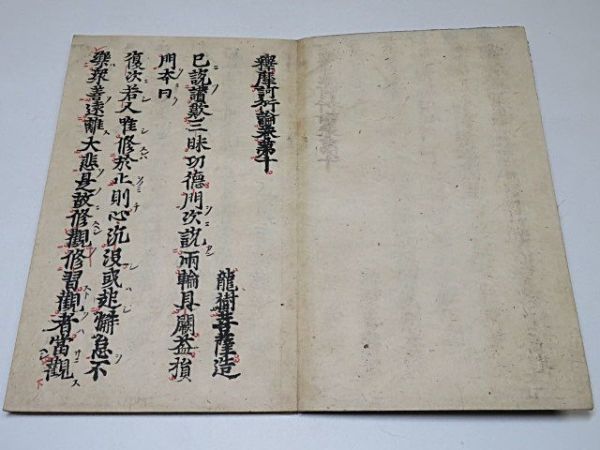 釋摩訶衍論卷第十
龍樹菩薩造
已説讃歎三昧功德門次説兩輪具闕益損
門本曰
復次若人唯修於止則心沉没或起懈怠不
樂衆善遠離大悲是故修觀修習觀者當觀